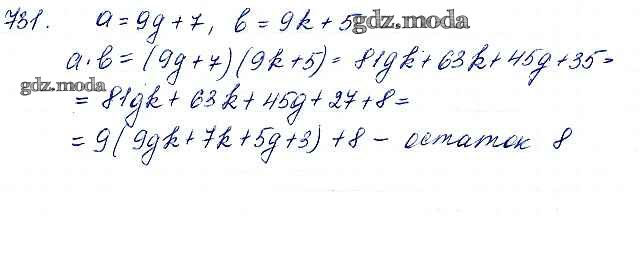 731. a = 9g + 7, b = 9k + 5 gdz.moda
a·b = (9g+7)(9k+5) = 81gk + 63k + 45g + 35 =
gdz.moda
= 81gk + 63k + 45g + 27 + 8 =
= 9(9gk + 7k + 5g + 3) + 8 – остаток 8